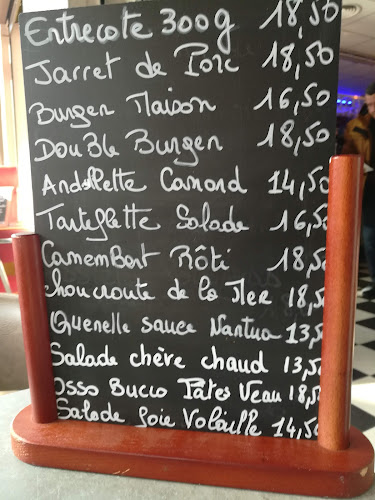 Entrecote 300g 18,50
Jarret de Porc 18,50
Burger Maison 16,50
Double Burger 18,50
Andouillette Canard 14,50
Tartiflette Salade 16,50
Camembert Rôti 18,50
choucroute de la Mer 18,50
Quenelle sauce Nantua 13,50
Salade chèvre chaud 13,50
Osso Bucco Pates Veau 18,50
Salade Foie Volaille 14,50